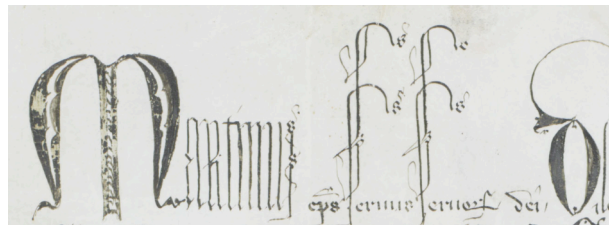 Martinus ep̄s ſeruus ſeruoꝝ dei